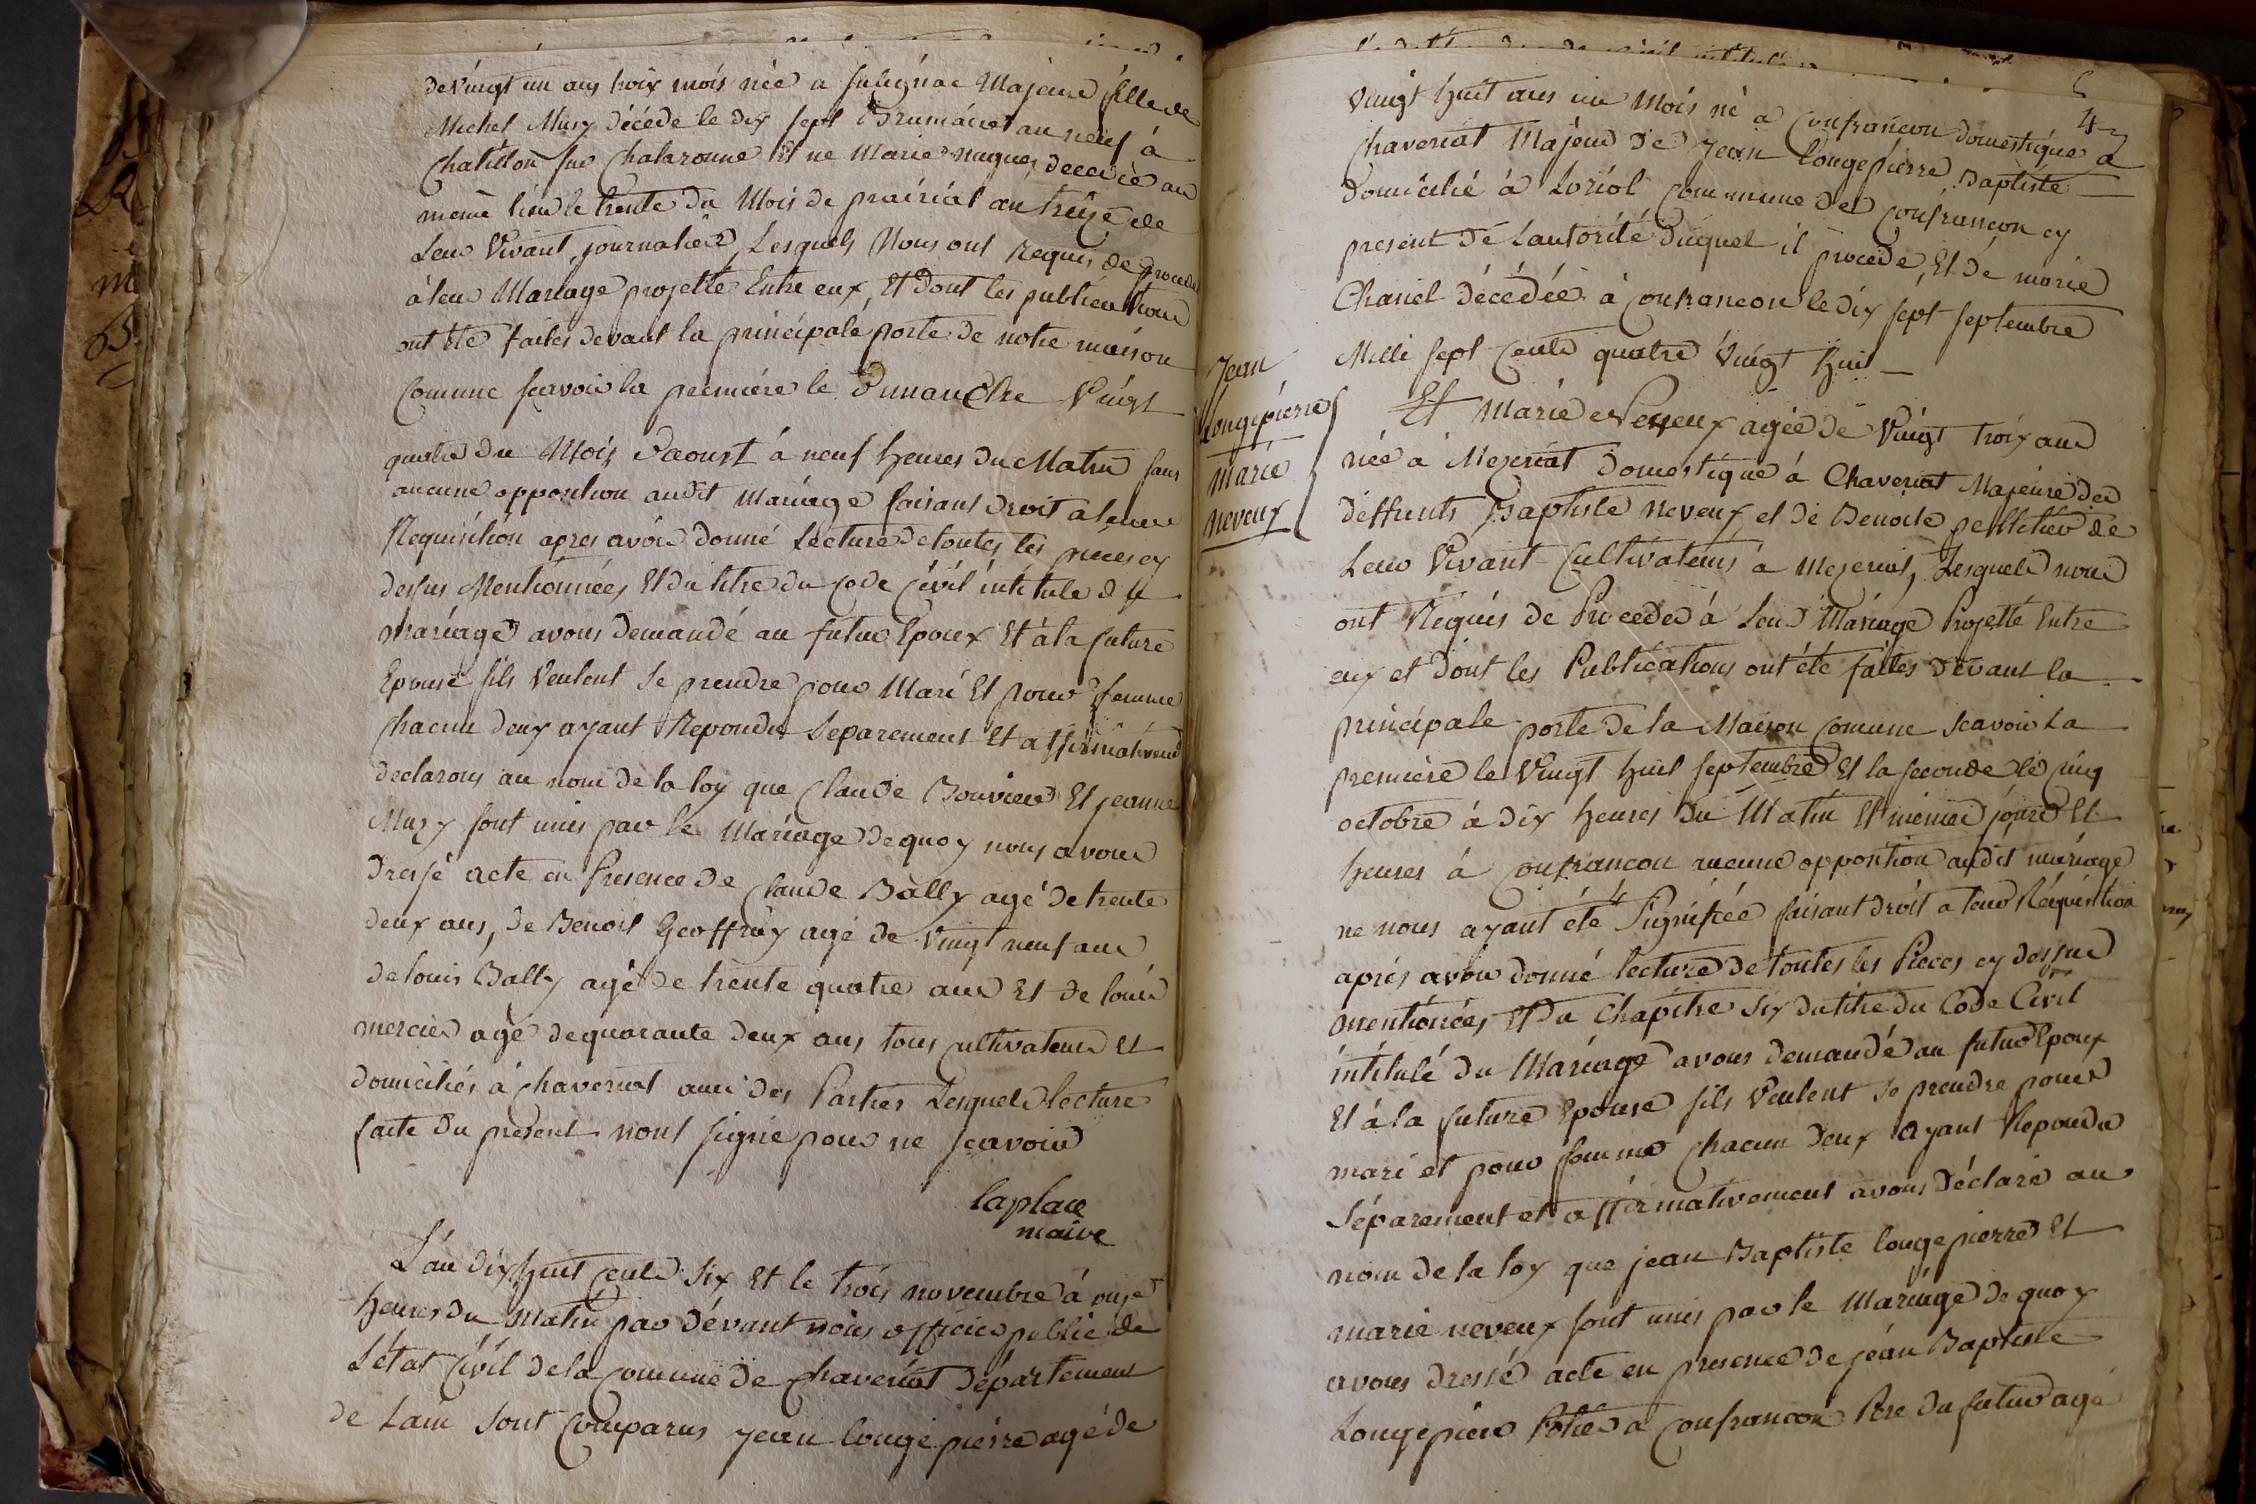 de vingt un ans troix mois née a Sulignac Majeure fille de
Michel Mury décédé le dix sept Brumaire an neuf à
Chatillon sur Chalaronne Et ne Marie décédée au
même lieu le trente du Mois de prairial an treize de
Leur Vivant journalier, Lesquels Nous ont Requis de proceder
à leur Mariage projetté Entre eux, Et Dont les publications
ont Eté faites devant la principale porte de notre maison
Comune scavoir la premiére le Dimanche Vingt
quatre du Mois Daoust à neuf heures du Matin sans
aucune opposition audit Mariage faisant Droit à leur
Requisition apres avoir donné Lecture de toutes les pieces cy
dessus Mentionnées, Et du titre du Code Civil intitulé du
Mariage avons demandé au futur Epoux Et à la future
Epouse sils Veulent se prendre pour Mari Et pour femme
Chacun deux ayant Repondu Separement Et affirmativement
declarons au nom de la loy que Claude Bouvier Et jeanne
Mury sont unis par le Mariage de quoy nous avons
dressé acte en Presence de Claude Bally agé de trente
deux ans, de Benoit Geoffray agé de vingt neuf ans
de louis Bally agé de trente quatre ans Et de louis
mercier agé de quarante deux ans tous cultivateurs Et
domiciliés à chaveriat amis des Parties Lesquels lecture
faite du présent nont signé pour ne scavoir
laplace
maire
L'an dix huit cents six Et le trois novembre à onze
heures du Matin par dévant nous officier public de
L'état Civil de la Comune de chaveriat Département
de Lain sont Comparus Jean longepierre agé de
4
vingt huit ans un Mois né a Confrancon domestique a
Chaveriat Majeur de Jean Longepierre Baptiste
domicilié à Loriol Commune de Confrancon cy
present de Lautorité duquel il procede, Et de marie
Chanel décédée à Confrancon le dix sept septembre
Mille sept Cents quatre vingt huit
Jean
Longepierre
Et
marie
neveux
Et Marie Neveux agée de Vingt troix ans
née à Mezeriat Domestique à Chaveriat Majeure des
deffunts Baptiste neveux et de Benoite pelletier de
Leur Vivant Cultivateurs à Mezeriat, Lesquels nous
ont Réquis de Proceder à Leur Mariage Projetté Entre
eux et Dont les Publications ont été faites dévant la
principale porte de la Maison Comune scavoir la
première le Vingt huit septembre Et la seconde le cinq
octobre à dix heures du Matin Et mêmes jours Et
heures à Confrancon aucune opposition audit mariage
ne nous ayant été Signifiée faisant droit a leur Réquisition
aprés avoir donné lecture de toutes les Pieces cy dessus
mentionées, Et du Chapitre six du titre du Code Civil
intitulé du Mariage avons demandé au futur Epoux
Et à la future Epouse sils Veulent se prendre pour
mari et pour femme Chacun deux ayant Repondu
Séparement et affirmativement avons déclaré au
nom de la loy que jean Baptiste longepierre Et
marie neveux sont unis par le Mariage de quoy
avons dressé acte en presence de jean Baptiste
Longepierre a Confrancon Pere du futur agé